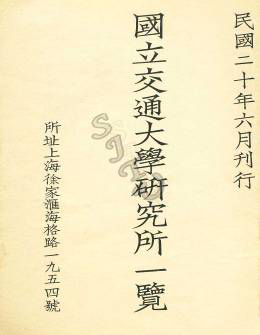 民國二十年六月刊行
國立交通大學研究所一覽
所址上海徐家滙海格路一九五四號
SJTU